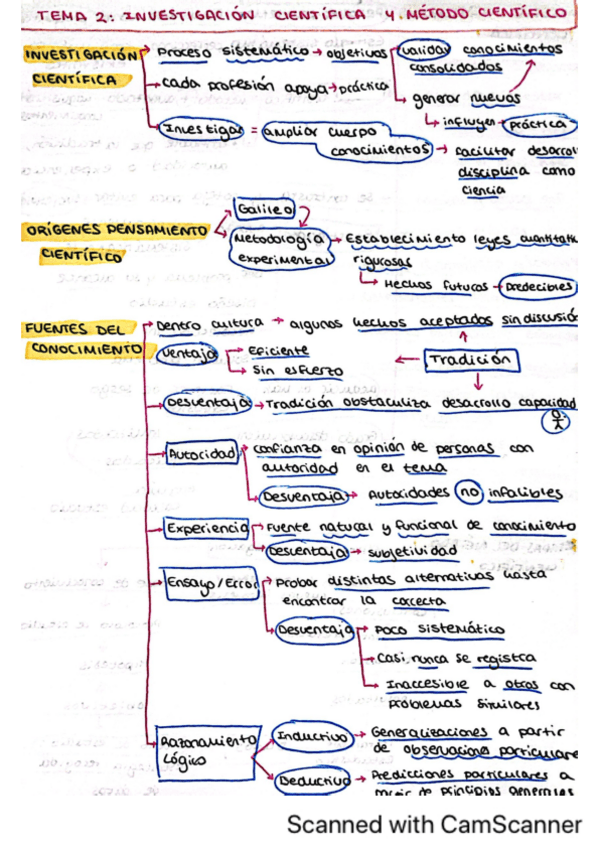 TEMA 2: INVESTIGACIÓN CIENTÍFICA Y MÉTODO CIENTÍFICO
INVESTIGACIÓN CIENTÍFICA
Proceso sistemático → objetivos
validar conocimientos consolidados
generar nuevos
influyen → práctica
cada profesión apoya → práctica
Investigar = ampliar cuerpo conocimientos → facilitar desarrol
disciplina como
ciencia
ORÍGENES PENSAMIENTO CIENTÍFICO
Galileo
Metodología experimental → Establecimiento leyes
rigurosas
Hechos futuros → predecibles
FUENTES DEL CONOCIMIENTO
Dentro cultura → algunos hechos aceptados sin discusió
Tradición
Ventaja
Eficiente
Sin esfuerzo
Desventaja → Tradición obstaculiza desarrollo capacidad
Autoridad
confianza en opinión de personas con
autoridad en el tema
Desventaja → Autoridades no infalibles
Experiencia
Fuente natural y funcional de conocimiento
Desventaja → subjetividad
Ensayo/Error
Probar distintas alternativas hasta
encontrar la correcta
Desventaja
Poco sistemático
Casi nunca se registra
Inaccesible a otros con
problemas similares
Razonamiento Lógico
Inductivo → Generalizaciones a partir
de observaciones particulare
Deductivo → Predicciones particulares a
partir de principios generales
Scanned with CamScanner